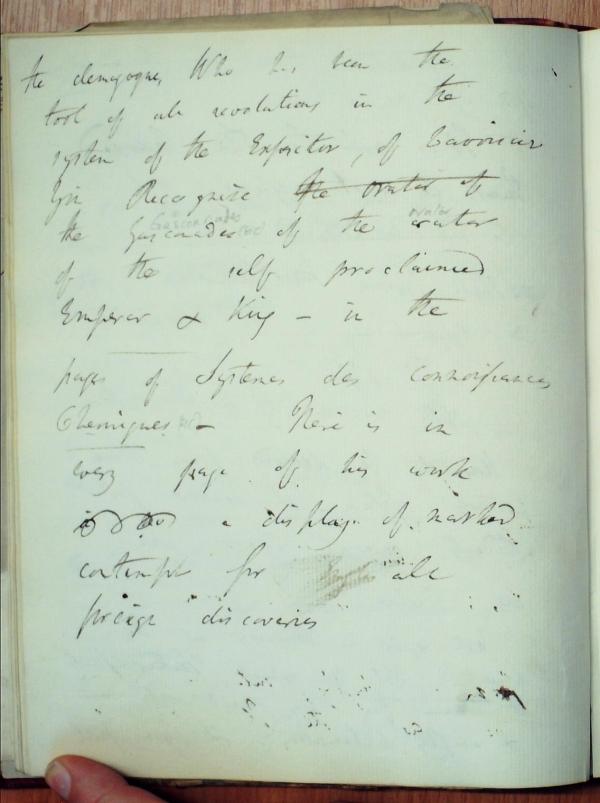 the demagogue, Who has been the
tool of all revolutions in the
system of the Expositor, of Lavoisier
You Recognise the orator of
the Gasconades of the orator
of the self proclaimed
Emperor & King – in the
pages of Systemes des connoissances
Chemiques – There is in
every page of his work
a display of marked
contempt for all
foreign discoveries